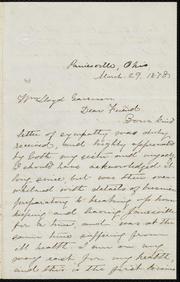 Painesville, Ohio
March 29, 1878
Wm Lloyd Garrison
Dear Friend
Your kind
letter of sympathy was duly
received, and highly appreciated
by both my sister and myself.
I should have acknowledged it
long since but was then over-
whelmed with details of business
preparatory to breaking up house
keeping and leaving Painesville
for a time, and was at the
same time suffering from
ill health I am on my
way east for my health,
and this is the first